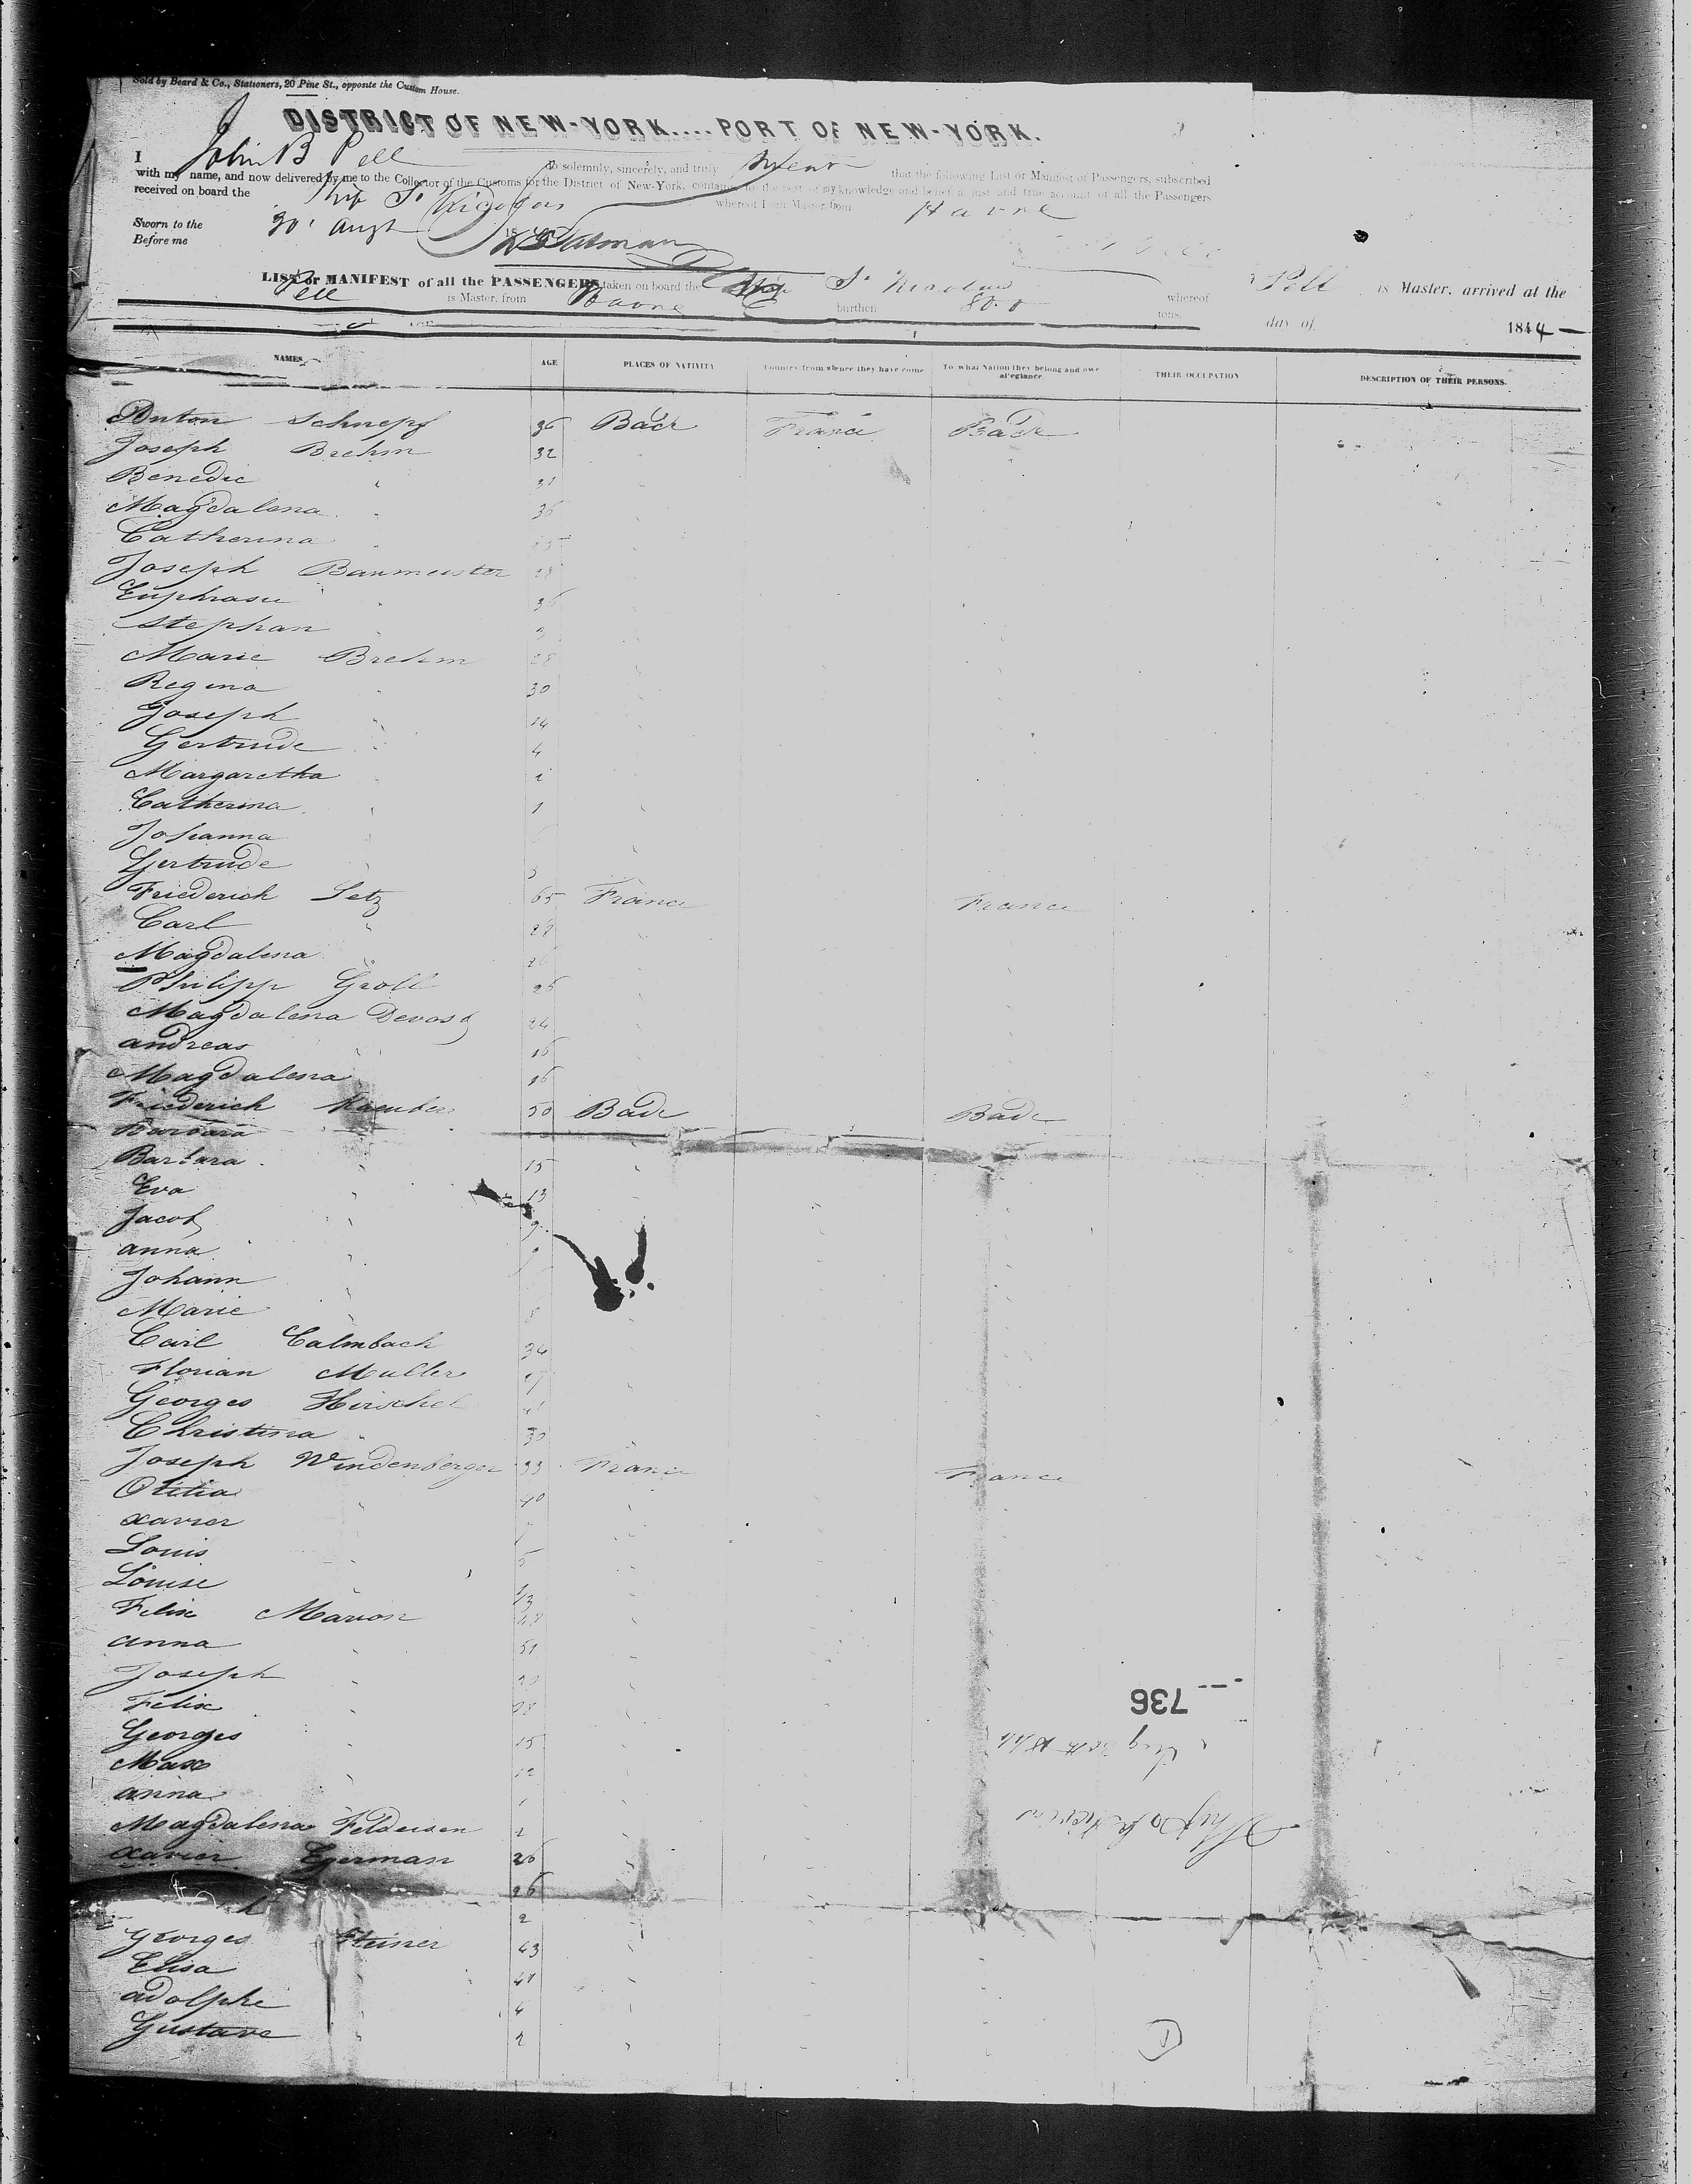 Sold by Beard & Co., Stationers, 20 Pine St., opposite the Custom House.
DISTRICT OF NEW-YORK.... PORT OF NEW-YORK.
I John B Pell do solemnly, sincerely, and truly Swear that the following List or Manifest of Passengers, subscribed
with my name, and now delivered by me to the Collector of the Customs for the District of New-York, contains to the best of my knowledge and belief a just and true account of all the Passengers
received on board the Ship St Nicolas whereof I am Master from Havre
Sworn to the 30' Augt 18
Before me
LIST or MANIFEST of all the PASSENGERS taken on board the Ship St Nicolas whereof Pell is Master, arrived at the
Pell is Master, from Havre burthen tons. day of 1844
NAMES AGE PLACES OF NATIVITY Country from whence they have come To what Nation they belong and owe allegiance THEIR OCCUPATION DESCRIPTION OF THEIR PERSONS.
Anton Schnepf 36 Bade France Bade
Joseph Brehm 32
Benedic "
Magdalena " 36
Catherina "
Joseph Baumeister 28
Euphrasie " 36
Stephan "
Marie Brehm 28
Regina " 30
Joseph " 14
Gertrude " 4
Margaretha " 2
Catherina " 1
Johanna "
Gertrude " 3
Friederich Setz 65 France France
Carl " 28
Magdalena " 26
Philipp Groll 25
Magdalena 24
Andreas " 16
Magdalena " 16
Friederich 50 Bade Bade
Barbara
Barbara " 15
Eva " 13
Jacob " 9
Anna "
Johann "
Marie "
Carl Calmbach 34
Florian Muller
Georges Hirschel 41
Christina " 30
Joseph Windenberger 33 France France
Otitia " 40
Xavier "
Louis " 5
Louise "
Felix Marion 48
Anna " 51
Joseph " 20
Felix "
Georges " 15
Max " 12
Anna " 1
Magdalena Feldeisen 2
Xavier Egerman 26
26
2
Georges Steiner 43
Elisa " 41
Adolphe " 4
Gustave " 2
736
Aug 30th 1844
Ship St Nicolas
1